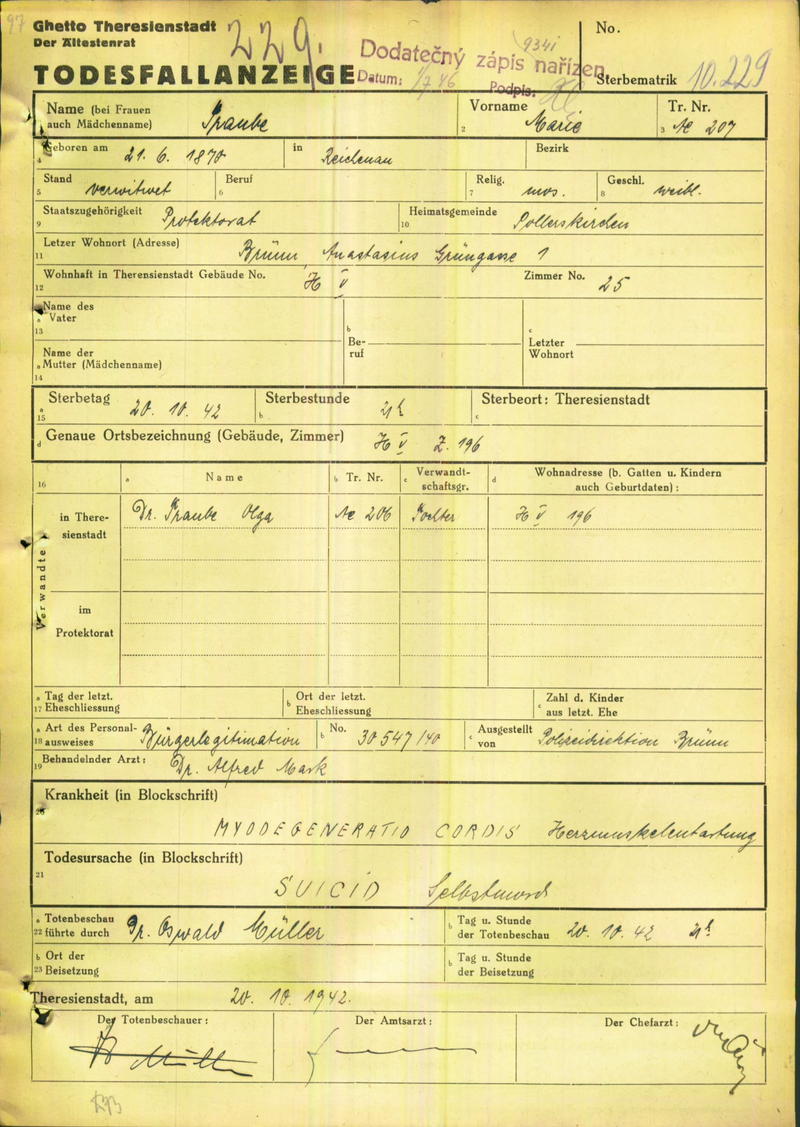 97
Ghetto Theresienstadt
Der Ältestenrat
TODESFALLANZEIGE
229.
Dodatečný zápis nařízen
9341
Datum: 1/7 46
Podpis:
No.
Sterbematrik 10.229
Name (bei Frauen auch Mädchenname) Traube
2 Vorname Marie
3 Tr. Nr. Ae 207
4 Geboren am 21. 6. 1870 in Reichenau Bezirk
5 Stand verwitwet 6 Beruf 7 Relig. mos. 8 Geschl. weibl.
9 Staatszugehörigkeit Protektorat 10 Heimatsgemeinde Pollerskirchen
11 Letzer Wohnort (Adresse) Brünn Anastasius Grüngasse 1
12 Wohnhaft in Theresienstadt Gebäude No. H V Zimmer No. 25
13 a Name des Vater b Beruf c Letzter Wohnort
14 a Name der Mutter (Mädchenname)
15 a Sterbetag 20. 10. 42 b Sterbestunde 21h c Sterbeort: Theresienstadt
d Genaue Ortsbezeichnung (Gebäude, Zimmer) H V Z. 196
16 a Name b Tr. Nr. c Verwandtschaftsgr. d Wohnadresse (b. Gatten u. Kindern auch Geburtdaten) :
Verwandte
in Theresienstadt Dr. Traube Olga Ae 206 Tochter H V 196
im Protektorat
17 a Tag der letzt. Eheschliessung b Ort der letzt. Eheschliessung c Zahl d. Kinder aus letzt. Ehe
18 a Art des Personalausweises Bürgerlegitimation b No. 30547/40 c Ausgestellt von Polizeidirektion Brünn
19 Behandelnder Arzt: Dr. Alfred Mark
20 Krankheit (in Blockschrift)
MYODEGENERATIO CORDIS Herzmuskelentartung
21 Todesursache (in Blockschrift)
SUICID Selbstmord
22 a Totenbeschau führte durch Dr. Oswald Müller b Tag u. Stunde der Totenbeschau 20. 10. 42 21h
23 b Ort der Beisetzung b Tag u. Stunde der Beisetzung
Theresienstadt, am 20. 10. 1942.
Der Totenbeschauer: Der Amtsarzt: Der Chefarzt: